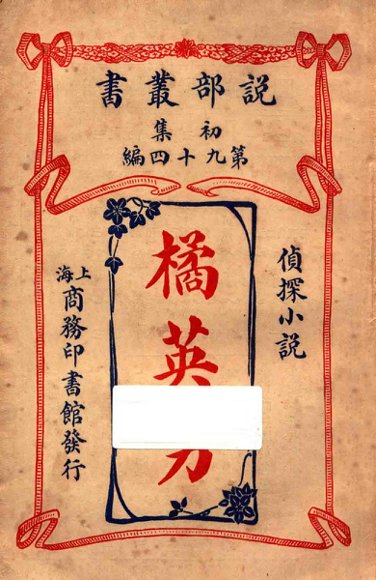 說部叢書
初集
第九十四編
偵探小說
橘英
上海
商務印書館發行